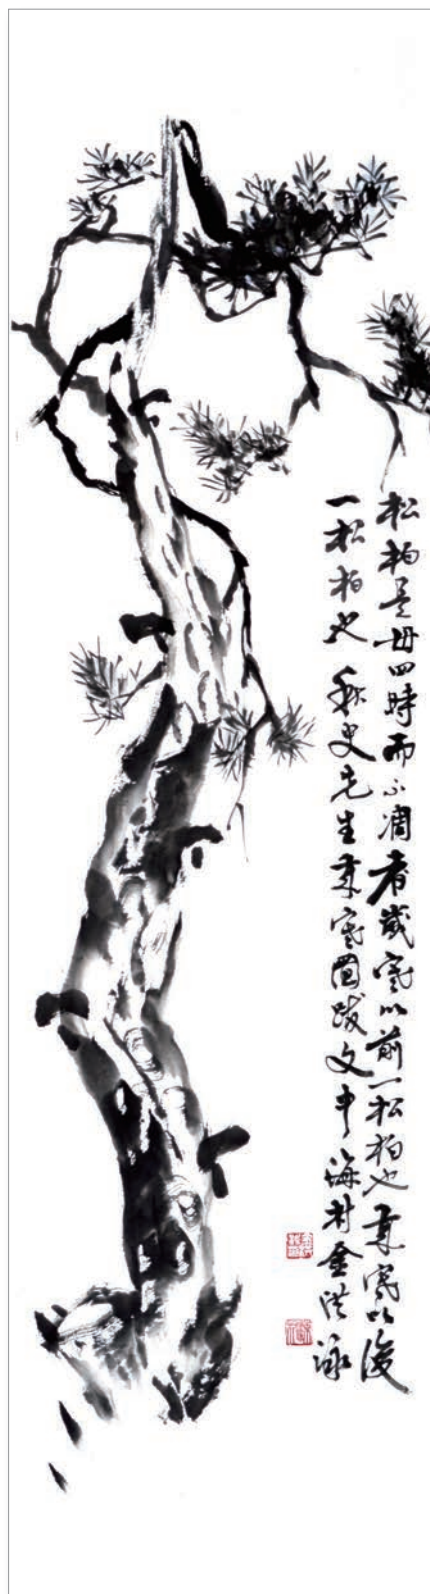 松柏是毋四時而不凋者歲寒以前一松柏也歲寒以後
一松柏也 秋史先生歲寒圖跋文中 海村金洪泳